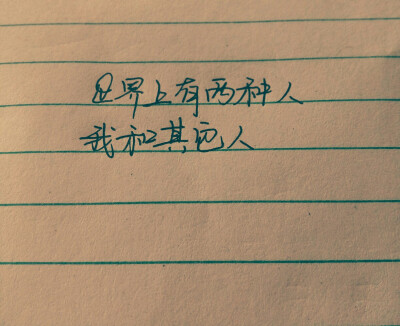 世界上有两种人
我和其他人